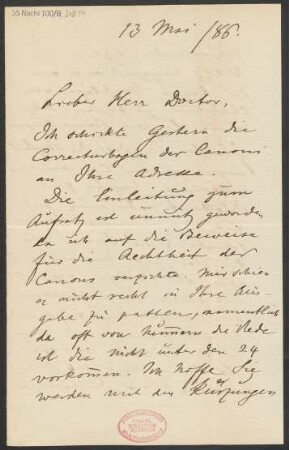 55 Nachl 100/B,
13 Mai /86.
Lieber Herr Doctor,
Ich schickte Gestern die
Correcturbogen der Canons
an Ihre Adresse.
Die Einleitung zum
Aufsatz ist unnütz geworden
da ich auf die Beweise
für die Aechtheit der
Canons verzichte. Mir schien
er nicht recht in Ihre Aus-
gabe zu passen, namentlich
da oft von Nummern die Rede
ist die nicht unter den 24
vorkommen. Ich hoffe Sie
werden mit den Kürzungen